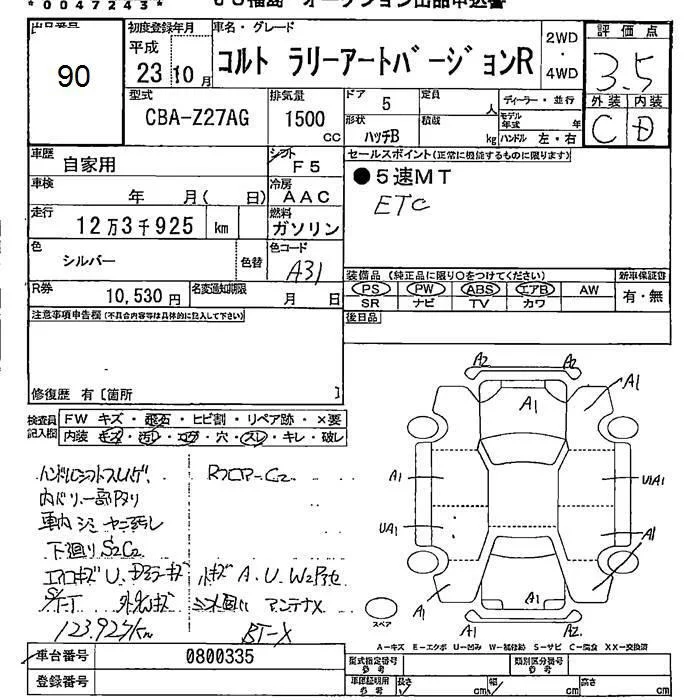 *0047243*
USS福島 オークション出品申込書
出品番号
90
初度登録年月
平成
23 10 月
車名・グレード
コルト ラリーアートバージョンR
2WD
・
4WD
評価点
3.5
外装 内装
C D
型式
CBA-Z27AG
排気量
1500
CC
ドア 5
定員 人
ディーラー・並行
モデル年式 年
形状 ハッチB
積載 kg
ハンドル 左・右
車歴
自家用
シフト
F5
車検
年 月( 日)
冷房
AAC
走行
12万3千925 km
燃料
ガソリン
色
シルバー
色替
色コード
A31
R券
10,530円
名変通知期限
月 日
セールスポイント(正常に機能するものに限ります)
●5速MT
ETC
装備品(純正品に限り○をつけてください)
新車保証書
PS PW ABS エアB AW
SR ナビ TV カワ
有・無
後日品
注意事項申告欄(不具合内容等は具体的に記入して下さい)
修復歴 有[箇所 ]
検査員記入欄
FW キズ・飛石・ヒビ割・リペア跡・×要
内装 キズ・汚レ・エグ・穴・スレ・キレ・破レ
ハンドルシフトスレハゲ
内バリ一部タリ
車内シミ ヤニ汚レ
下廻りS2C2
エアロキズU、
外
123.925km
RフロアーC2
A.U.W2P他
アンテナX
BT-X
A2 A2
A1
A1
A1
U1A1
UA1
A1
A1
A1
A1
A2
スペア
A-キズ E-エクボ U-凹み W-補修跡 S-サビ C-腐食 XX-交換済
車台番号
0800335
登録番号
型式指定番号
参考
類別区分番号
参考
車庫証明用
参考
長さ cm
幅 cm
高さ cm